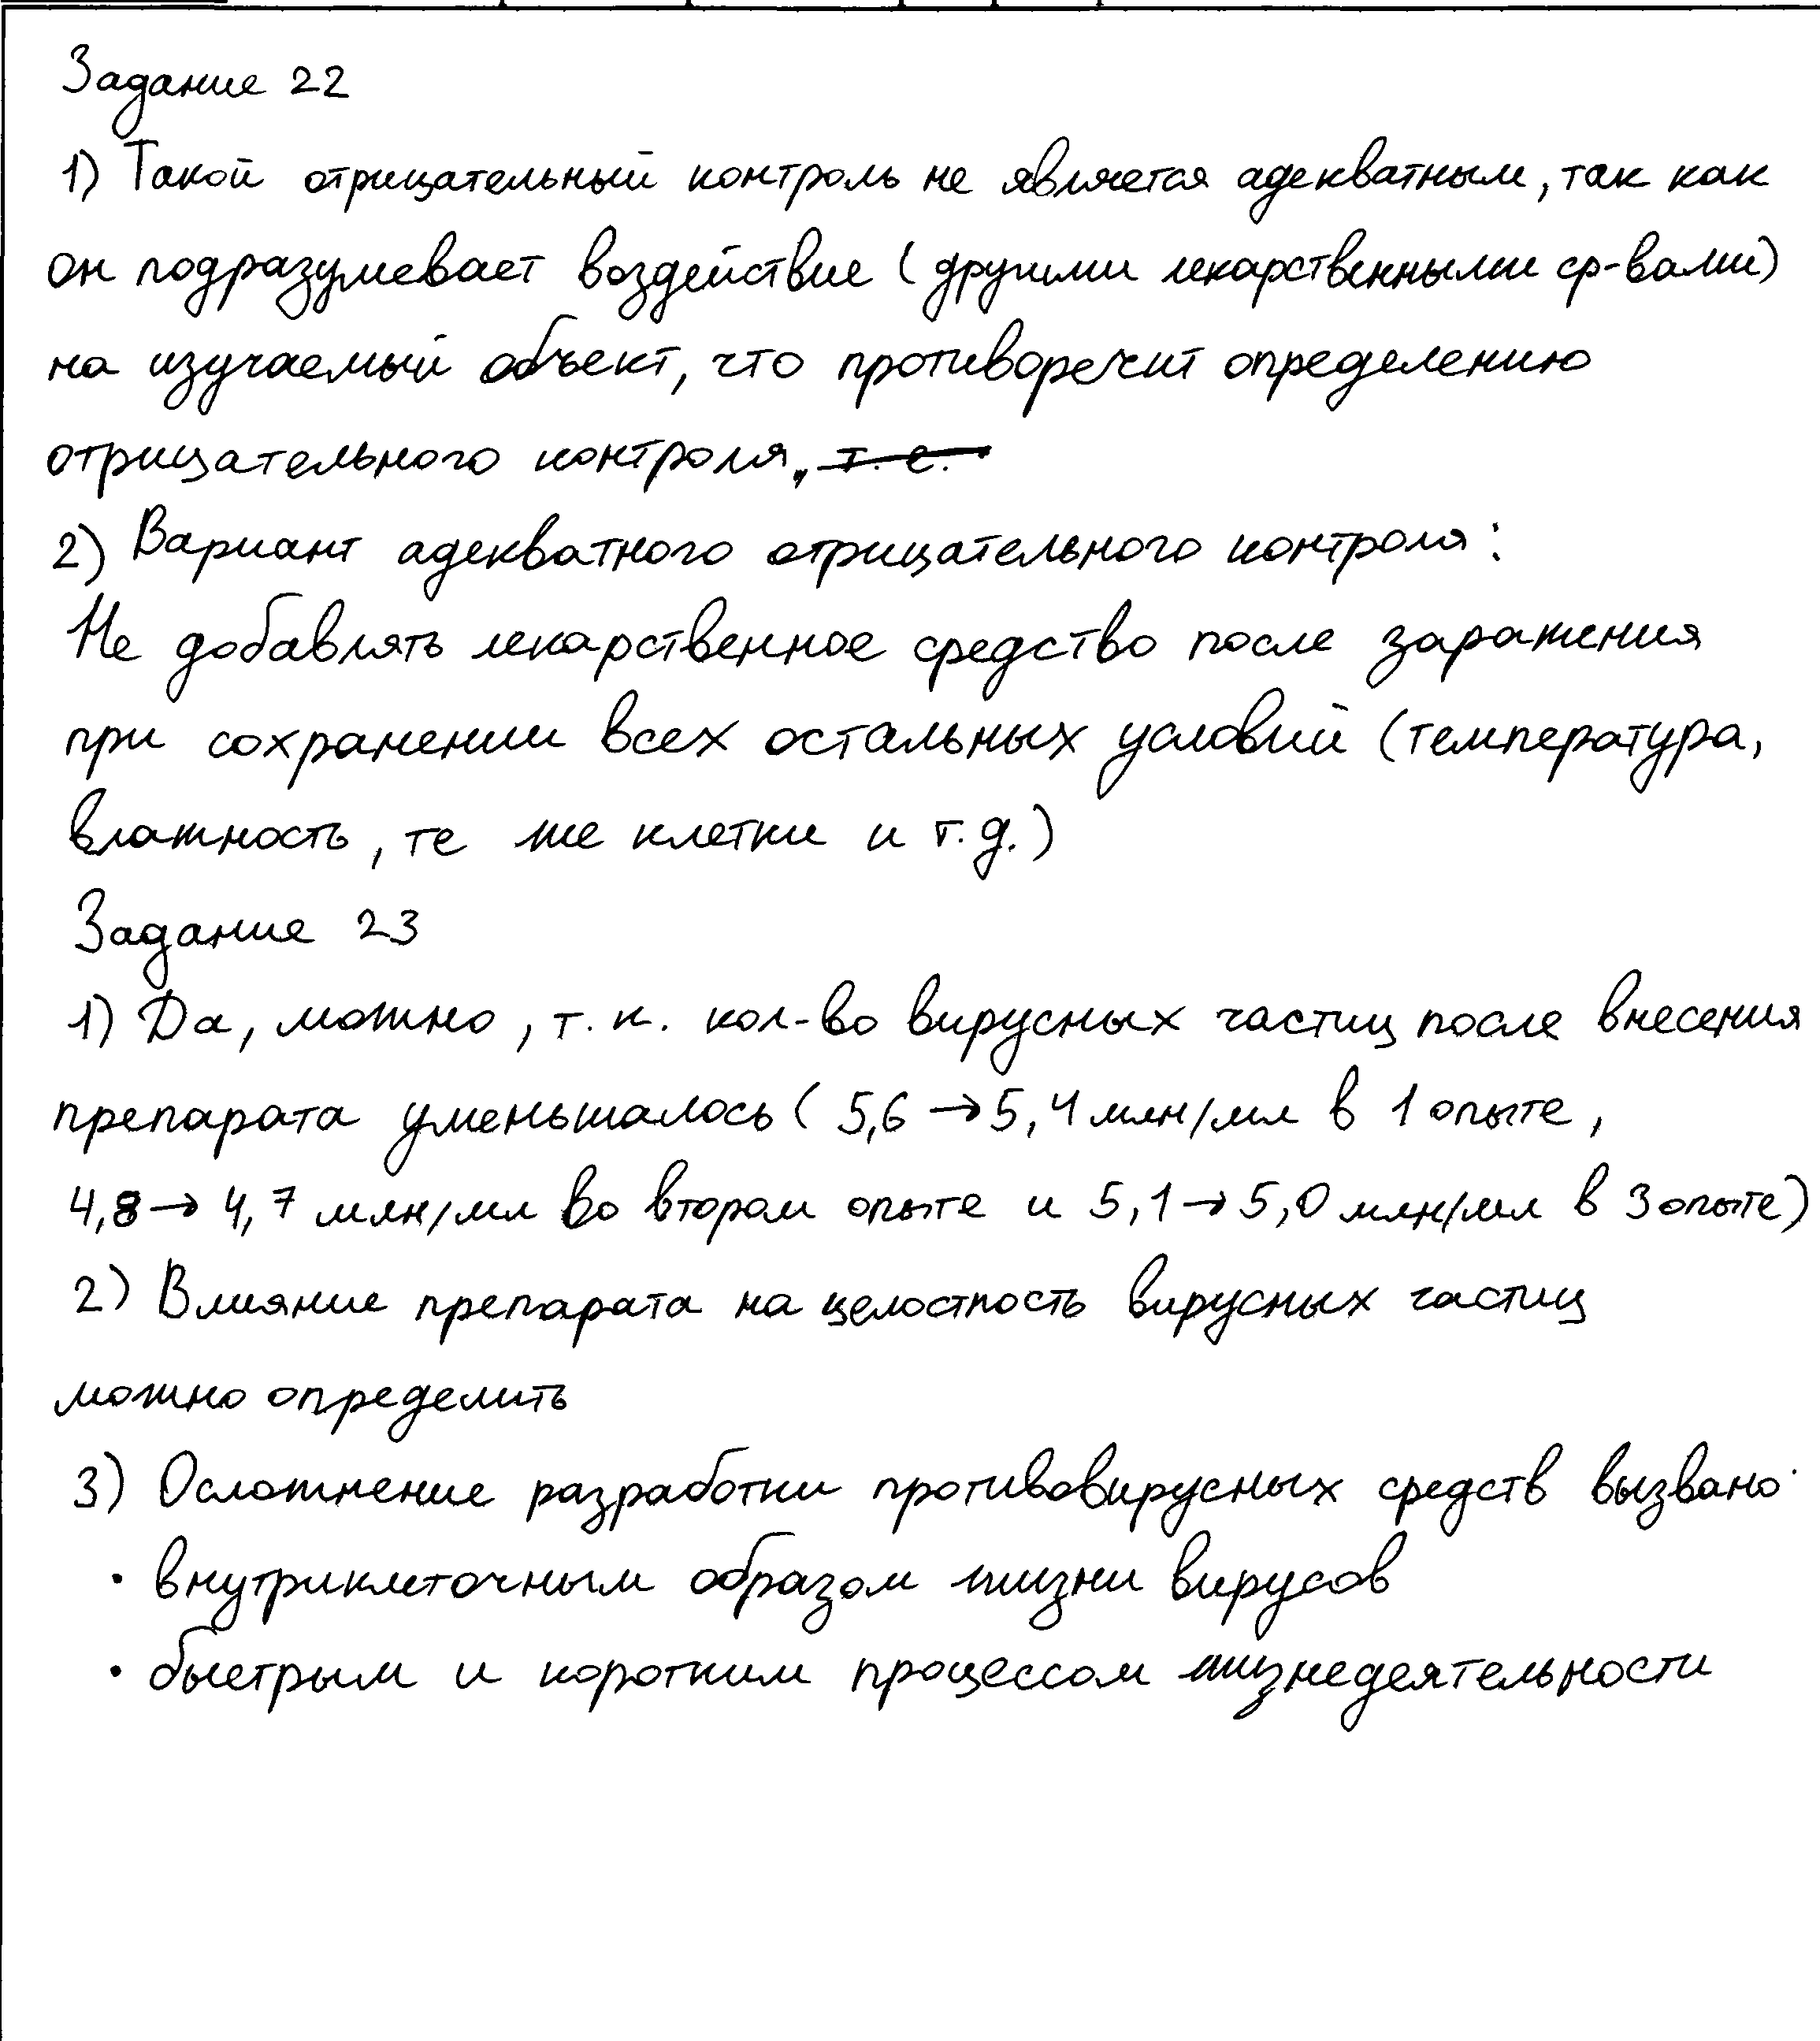 Задание 22
1) Такой отрицательный контроль не является адекватным, так как
он подразумевает воздействие (другими лекарственными ср-вами)
на изучаемый объект, что противоречит определению
отрицательного контроля, т. е.
2) Вариант адекватного отрицательного контроля:
Не добавлять лекарственное средство после заражения
при сохранении всех остальных условий (температура,
влажность, те же клетки и т.д.)
Задание 23
1) Да, можно, т. к. кол-во вирусных частиц после внесения
препарата уменьшалось (5,6 → 5,4 млн/мл в 1 опыте,
4,8 → 4,7 млн/мл во втором опыте и 5,1 → 5,0 млн/мл в 3 опыте)
2) Влияние препарата на целостность вирусных частиц
можно определить
3) Осложнение разработки противовирусных средств вызвано
• внутриклеточным образом жизни вирусов
• быстрым и коротким процессом жизнедеятельности